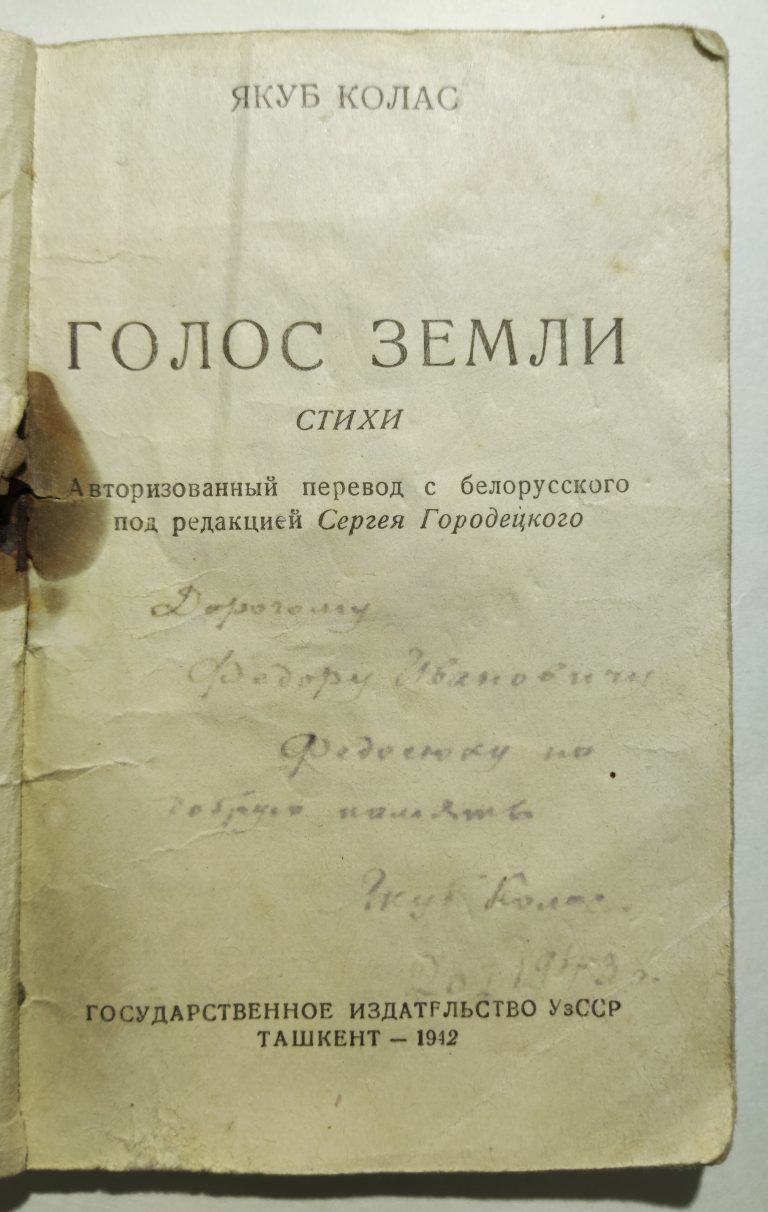 ЯКУБ КОЛАС
ГОЛОС ЗЕМЛИ
СТИХИ
Авторизованный перевод с белорусского
под редакцией Сергея Городецкого
Дорогому
Федору Ивановичу
Федосюку на
добрую память
Якуб Колас.
1943 г.
ГОСУДАРСТВЕННОЕ ИЗДАТЕЛЬСТВО УзССР
ТАШКЕНТ — 1942